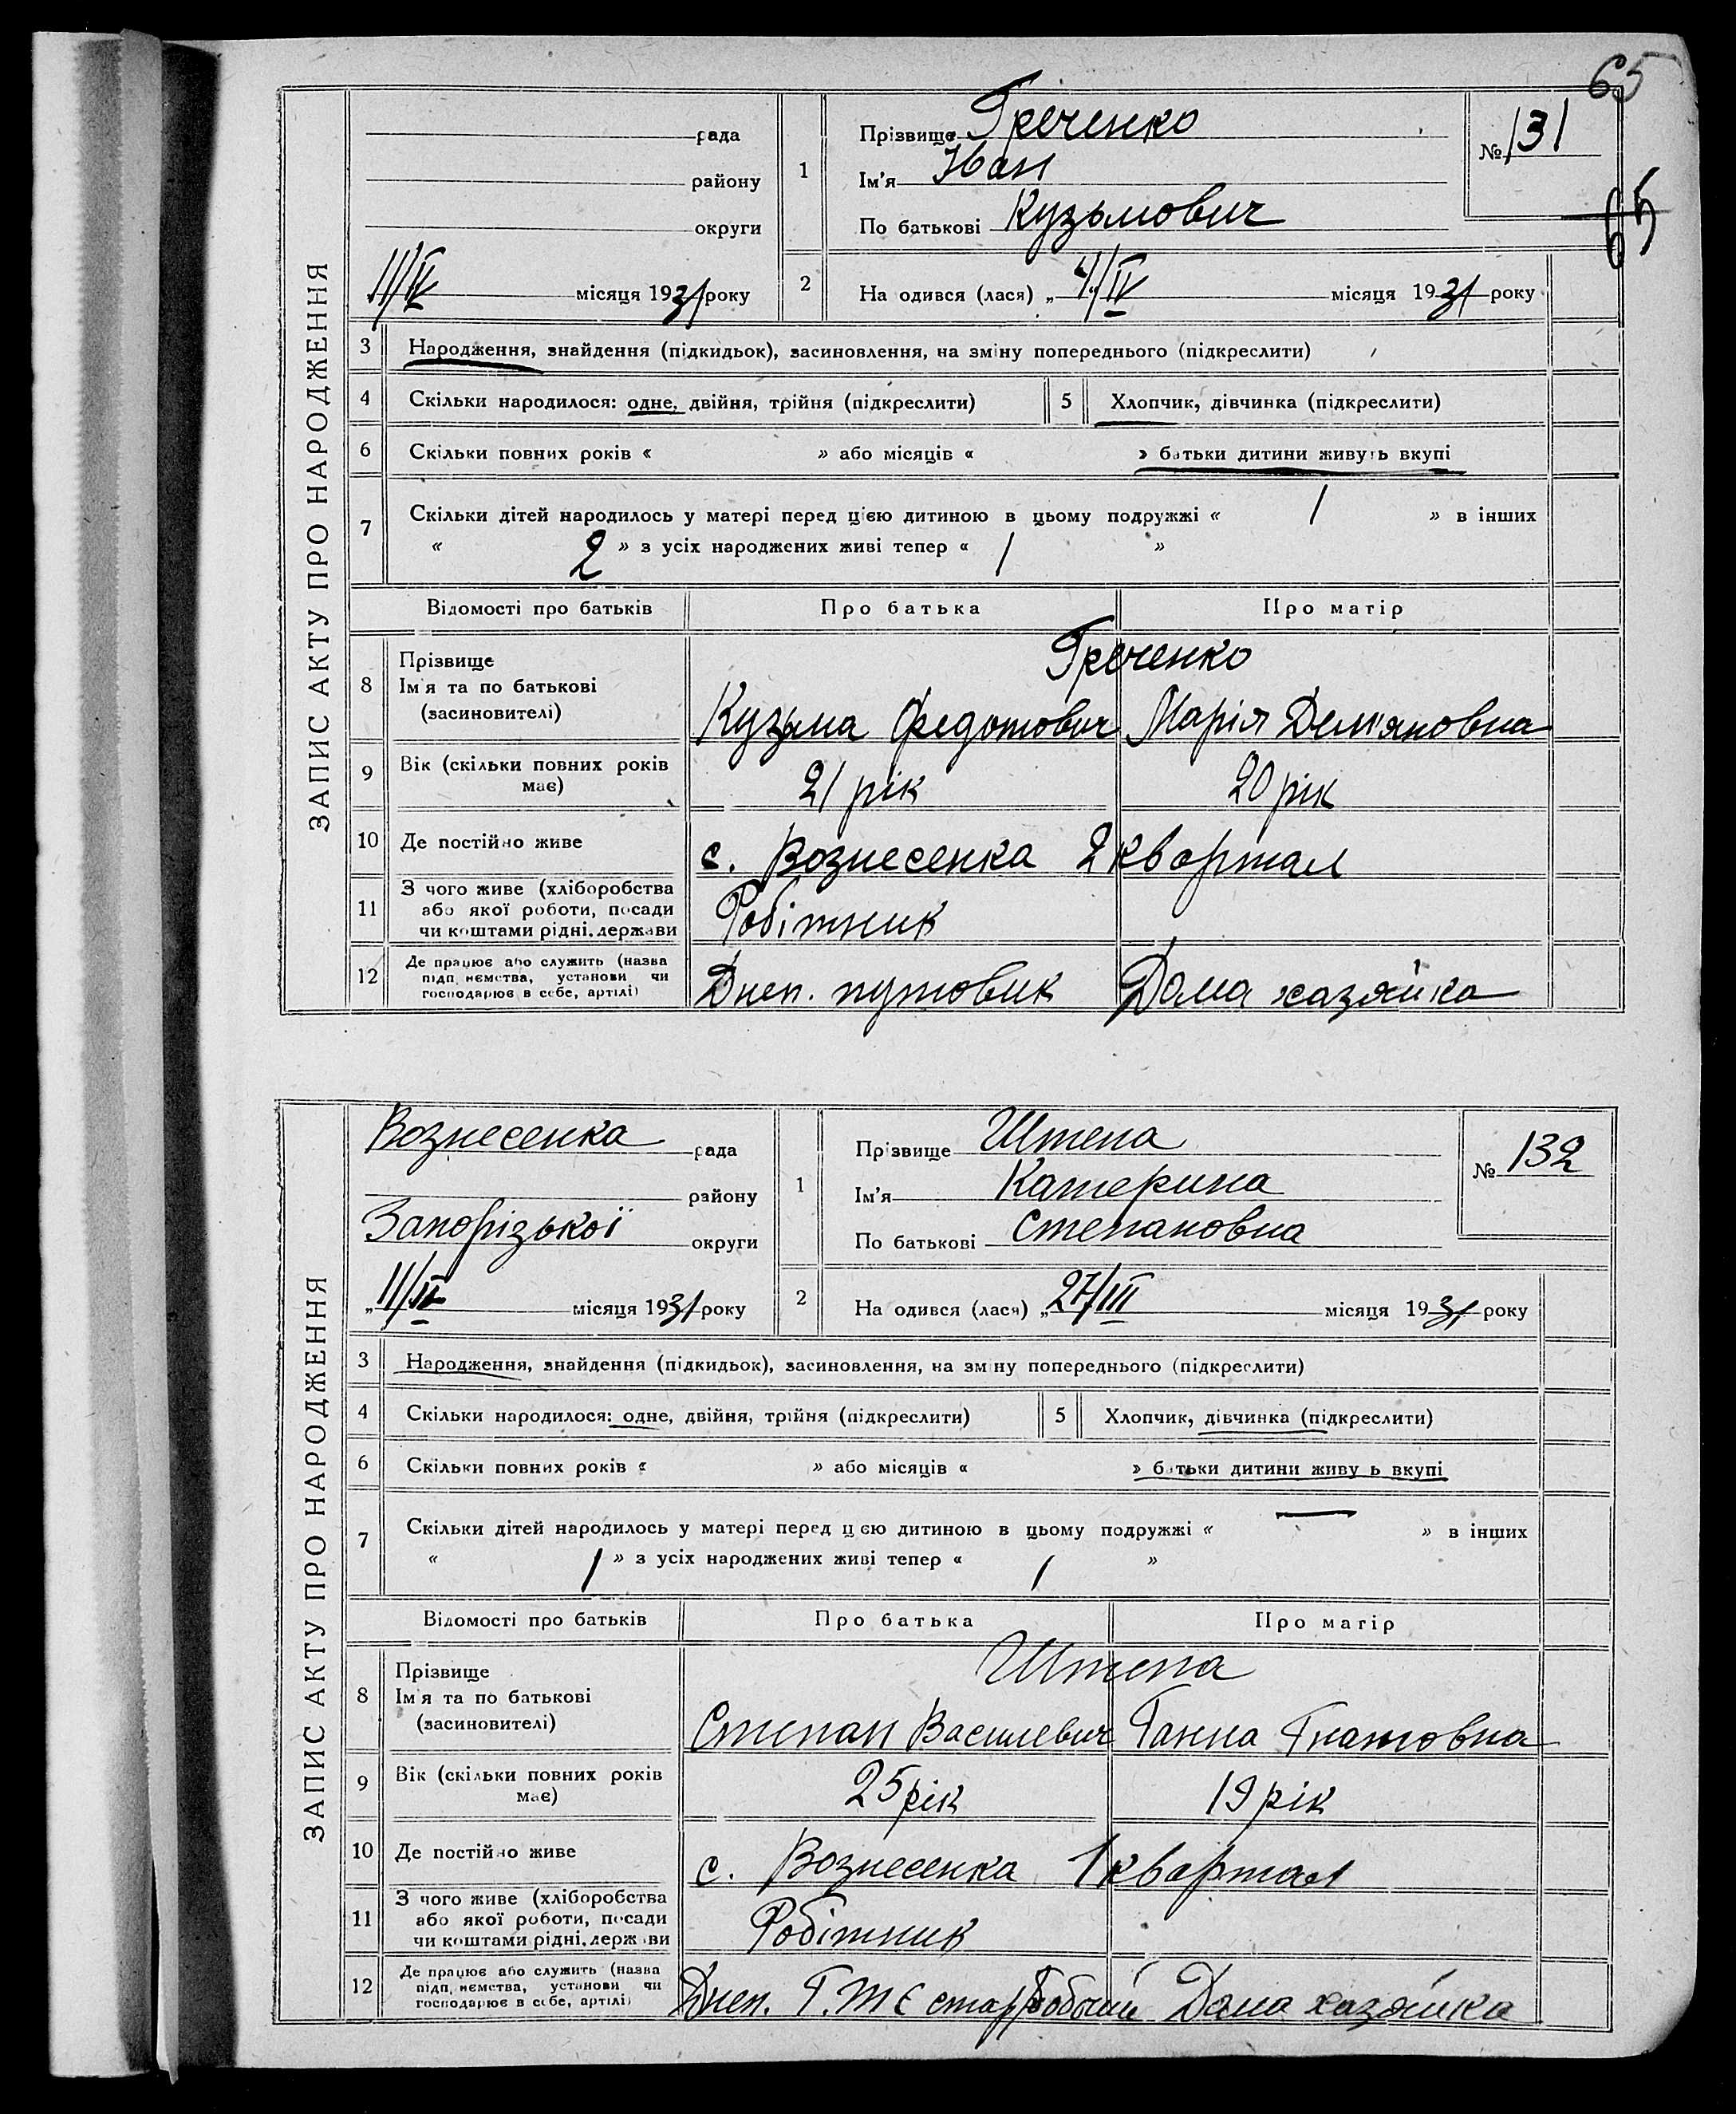 65
ЗАПИС АКТУ ПРО НАРОДЖЕННЯ
рада
району
округи
11/IV місяця 1931 року
1
Прізвище Греченко
Ім'я Іван
По батькові Кузьмович
№ 131
65
2
На одився (лася) „4/IV місяця 1931 року
3 Народження, знайдення (підкидьок), засиновлення, на зміну попереднього (підкреслити)
4 Скільки народилося: одне, двійня, трійня (підкреслити) 5 Хлопчик, дівчинка (підкреслити)
6 Скільки повних років « » або місяців « » батьки дитини живуть вкупі
7 Скільки дітей народилось у матері перед цією дитиною в цьому подружжі « 1 » в інших
« 2 » з усіх народжених живі тепер « 1 »
Відомості про батьків Про батька Про матір
8 Прізвище
Ім'я та по батькові
(засиновителі)
Греченко
Кузьма Федотович Марія Дем'яновна
9 Вік (скільки повних років має) 21 рік 20 рік
10 Де постійно живе с. Вознесенка 2 квартал
11 З чого живе (хліборобства
або якої роботи, посади
чи коштами рідні, держави
Робітник
12 Де працює або служить (назва
підп нємства, установи чи
господарює в себе, артілі)
Днеп. путовик Дома хазяйка
ЗАПИС АКТУ ПРО НАРОДЖЕННЯ
Вознесенка рада
району
Запорізької округи
„11/IV місяця 1931 року
1
Прізвище Штепа
Ім'я Катерина
По батькові Степановна
№ 132
2
На одився (лася) „27/III місяця 1931 року
3 Народження, знайдення (підкидьок), засиновлення, на зміну попереднього (підкреслити)
4 Скільки народилося: одне, двійня, трійня (підкреслити) 5 Хлопчик, дівчинка (підкреслити)
6 Скільки повних років « » або місяців « » батьки дитини живу ь вкупі
7 Скільки дітей народилось у матері перед цією дитиною в цьому подружжі « — » в інших
« 1 » з усіх народжених живі тепер « 1 »
Відомості про батьків Про батька Про матір
8 Прізвище
Ім'я та по батькові
(засиновителі)
Штепа
Степан Василевич Ганна Гнатовна
9 Вік (скільки повних років має) 25 рік 19 рік
10 Де постійно живе с. Вознесенка 1 квартал
11 З чого живе (хліборобства
або якої роботи, посади
чи коштами рідні, держави
Робітник
12 Де працює або служить (назва
підп нємства, установи чи
господарює в себе, артілі)
Днеп. Дома хазяйка